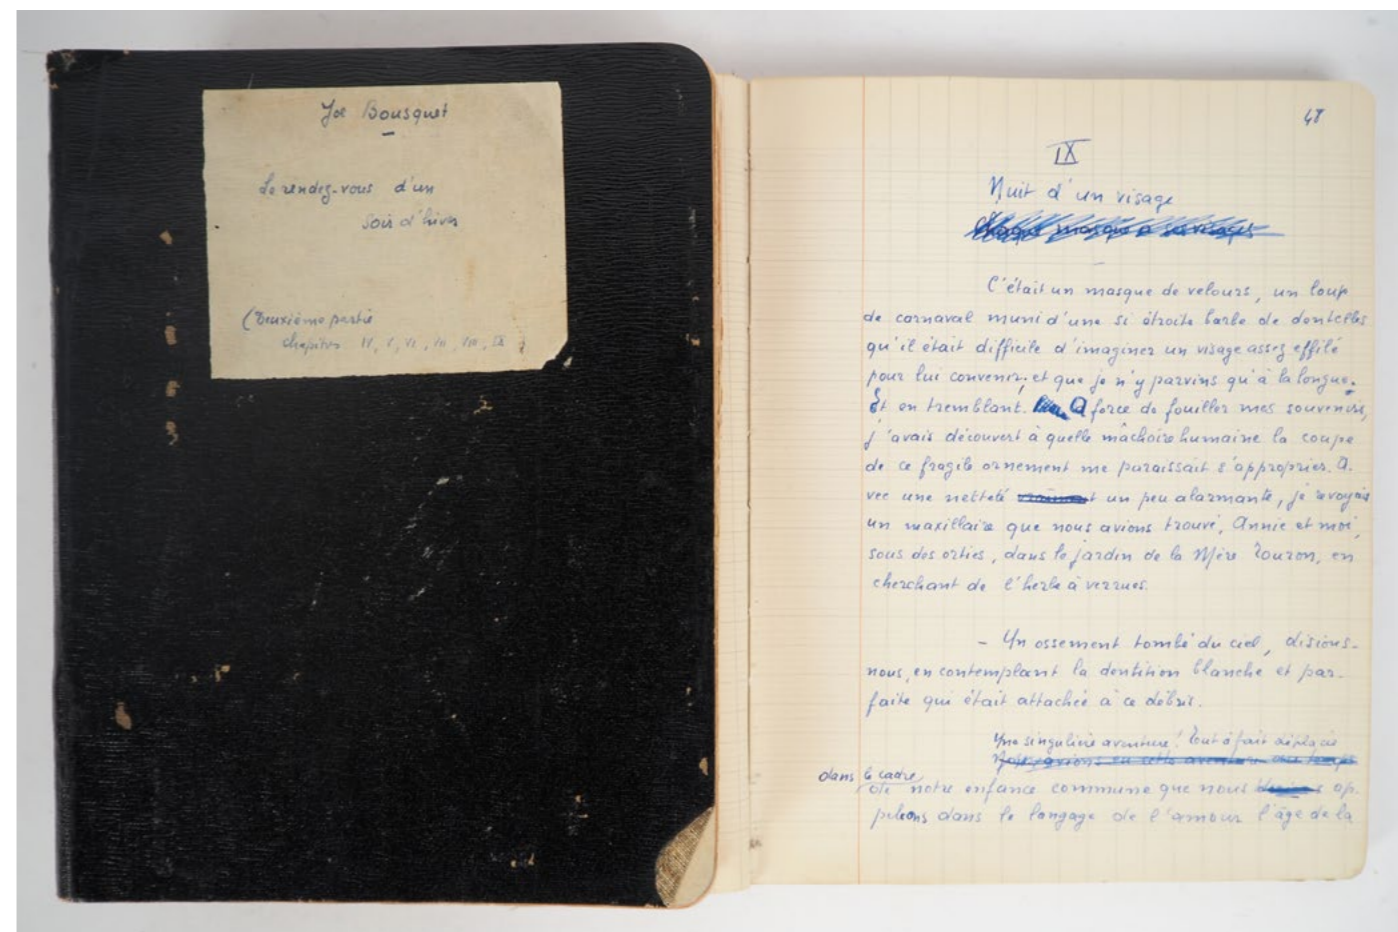 Joë Bousquet
Le rendez-vous d'un
soir d'hiver
(Deuxième partie
chapitres IV, V, VI, VII, VIII, IX)
48
IX
Nuit d'un visage
masque a
C'était un masque de velours, un loup
de carnaval muni d'une si étroite barbe de dentelles
qu'il était difficile d'imaginer un visage assez effilé
pour lui convenir, et que je n'y parvins qu'à la longue.
Et en tremblant. A force de fouiller mes souvenirs,
j'avais découvert à quelle mâchoire humaine la coupe
de ce fragile ornement me paraissait s'approprier. A.
vec une netteté vraiment un peu alarmante, je revoyais
un maxillaire que nous avions trouvé, Annie et moi,
sous des orties, dans le jardin de la Mère Touron, en
cherchant de l'herbe à verrues.
- Un ossement tombé du ciel, disions-
nous, en contemplant la dentition blanche et par-
faite qui était attachée à ce débris.
Une singulière aventure! Tout à fait déplacée
avions eu cette aventure
dans le cadre
de notre enfance commune que nous ap-
pelions dans le langage de l'amour l'âge de la